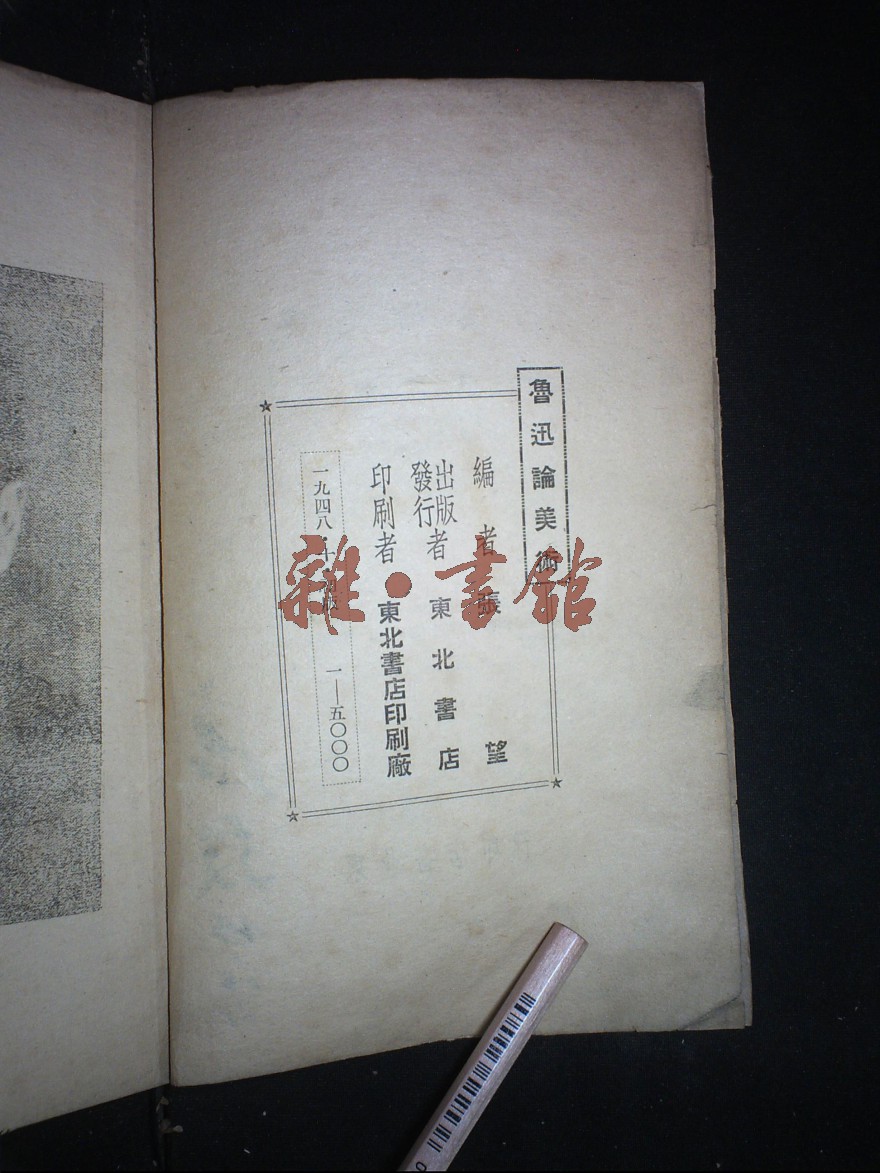 魯迅論美術
編者 張望
出版者
發行
東北書店
印刷者 東北書店印刷廠
一九四八·十 版 一—五〇〇〇
雜·書館